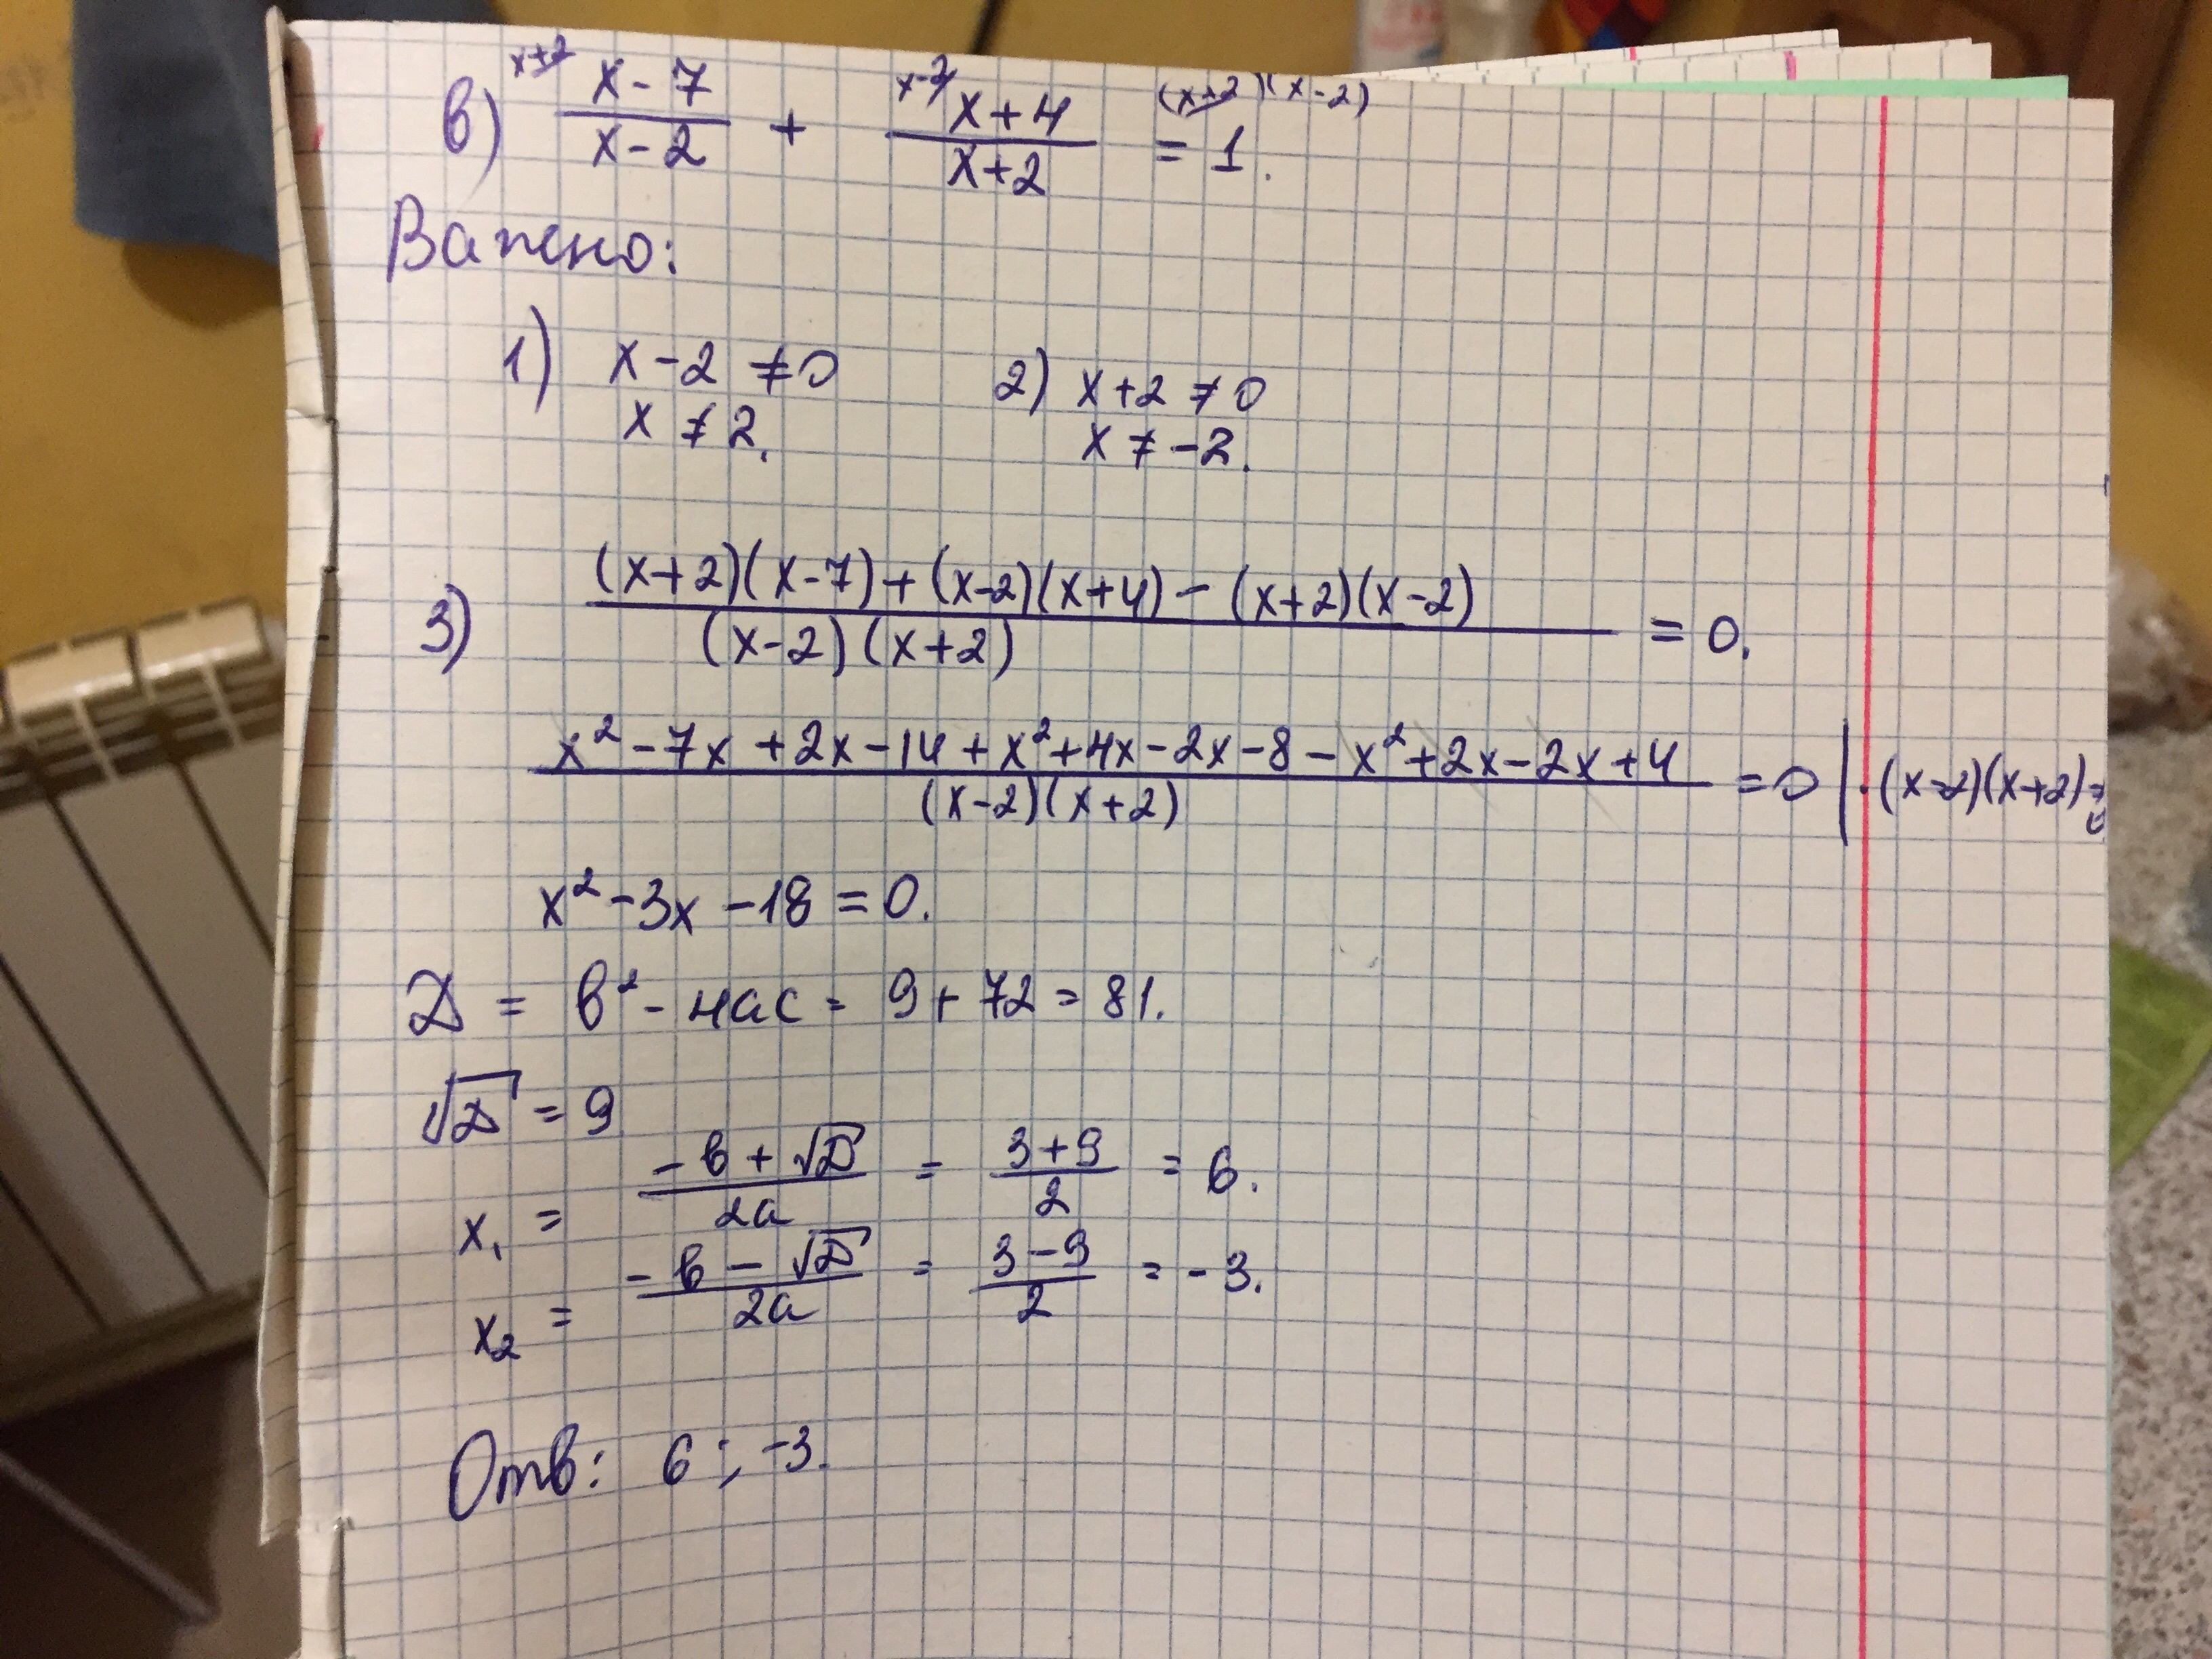 в) x+2 (x-7)/(x-2) + x-2 (x+4)/(x+2) = 1. (x+2)(x-2)
Важно:
1) x-2 ≠ 0 2) x+2 ≠ 0
x ≠ 2. x ≠ -2.
3) ((x+2)(x-7)+(x-2)(x+4)-(x+2)(x-2))/((x-2)(x+2)) = 0.
(x²-7x+2x-14+x²+4x-2x-8-x²+2x-2x+4)/((x-2)(x+2)) = 0 | ·(x-2)(x+2)
x²-3x-18=0.
D = в²-4ac = 9+72=81.
√D = 9
x₁ = (-в+√D)/2a = (3+9)/2 = 6.
x₂ = (-в-√D)/2a = (3-9)/2 = -3.
Отв: 6; -3.